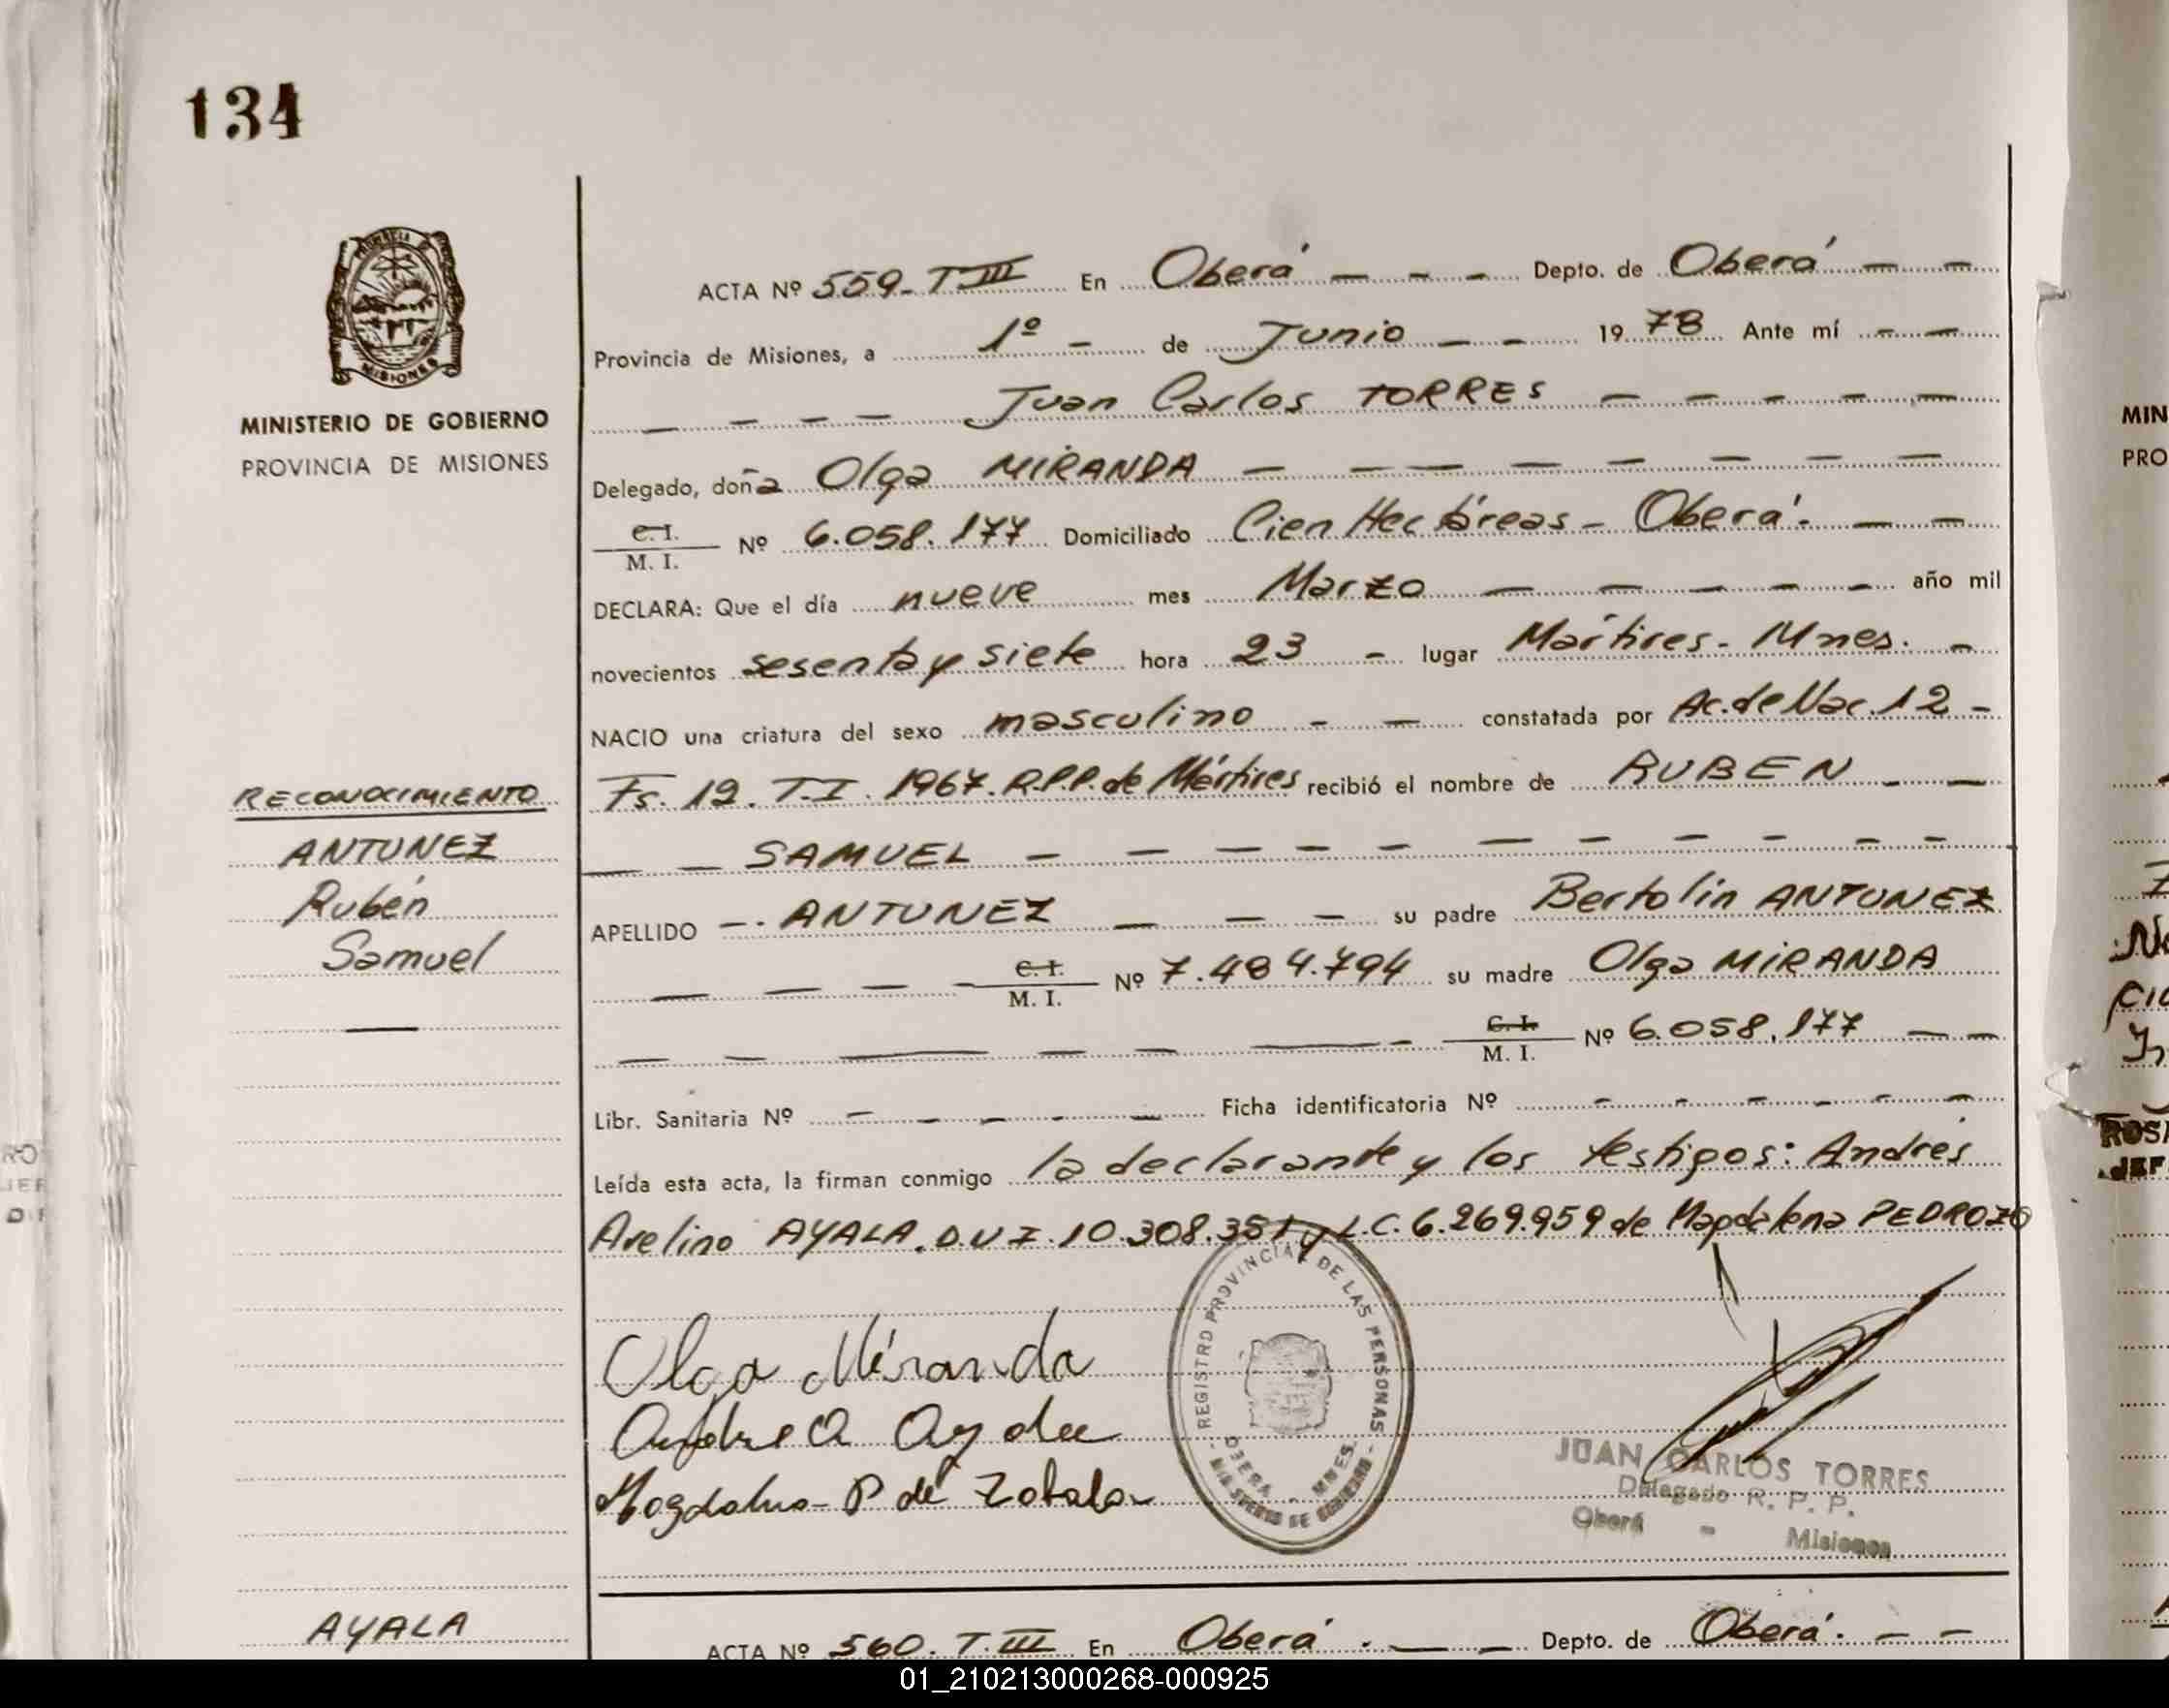 134
PROVINCIA DE
MISIONES
MINISTERIO DE GOBIERNO
PROVINCIA DE MISIONES
RECONOCIMIENTO
ANTUNEZ
Rubén
Samuel
ACTA Nº 559- T III En Oberá - - - Depto. de Oberá - -
Provincia de Misiones, a 1º - de Junio - - 1978 Ante mí - -
- - - Juan Carlos TORRES - - - - -
Delegado, doña Olga MIRANDA - - - - - - - -
C. I.
M. I. Nº 6.058.177 Domiciliado Cien Hectáreas - Oberá. - -
DECLARA: Que el día nueve mes Marzo - - - - - año mil
novecientos sesenta y siete hora 23 - lugar Mártires - Mnes. -
NACIO una criatura del sexo masculino - - constatada por Ac. de Nac. 12 -
Fs. 12. T. I. 1967. R.P.P. de Mártires recibió el nombre de RUBEN - -
- - SAMUEL - - - - - - - - - -
APELLIDO -. ANTUNEZ - - - su padre Bertolin ANTUNEZ
- - - - C. I.
M. I. Nº 7.484.794 su madre Olga MIRANDA
- - - - - - - C. I.
M. I. Nº 6.058.177 - -
Libr. Sanitaria Nº - - - - Ficha identificatoria Nº - - - - - -
Leída esta acta, la firman conmigo la declarante y los testigos: Andrés
Avelino AYALA. D.U I. 10.308.351 y L.C. 6.269.959 de Magdalena PEDROZO
REGISTRO PROVINCIAL DE LAS PERSONAS
OBERA - MNES.
MINISTERIO DE GOBIERNO
Olga Miranda
Magdalena P de
JUAN CARLOS TORRES
Delegado R. P. P.
Oberá - Misiones
AYALA
ACTA Nº 560. T. III En Oberá . - - Depto. de Oberá. - -
MIN
PRO
ROS
JEF
01_210213000268-000925